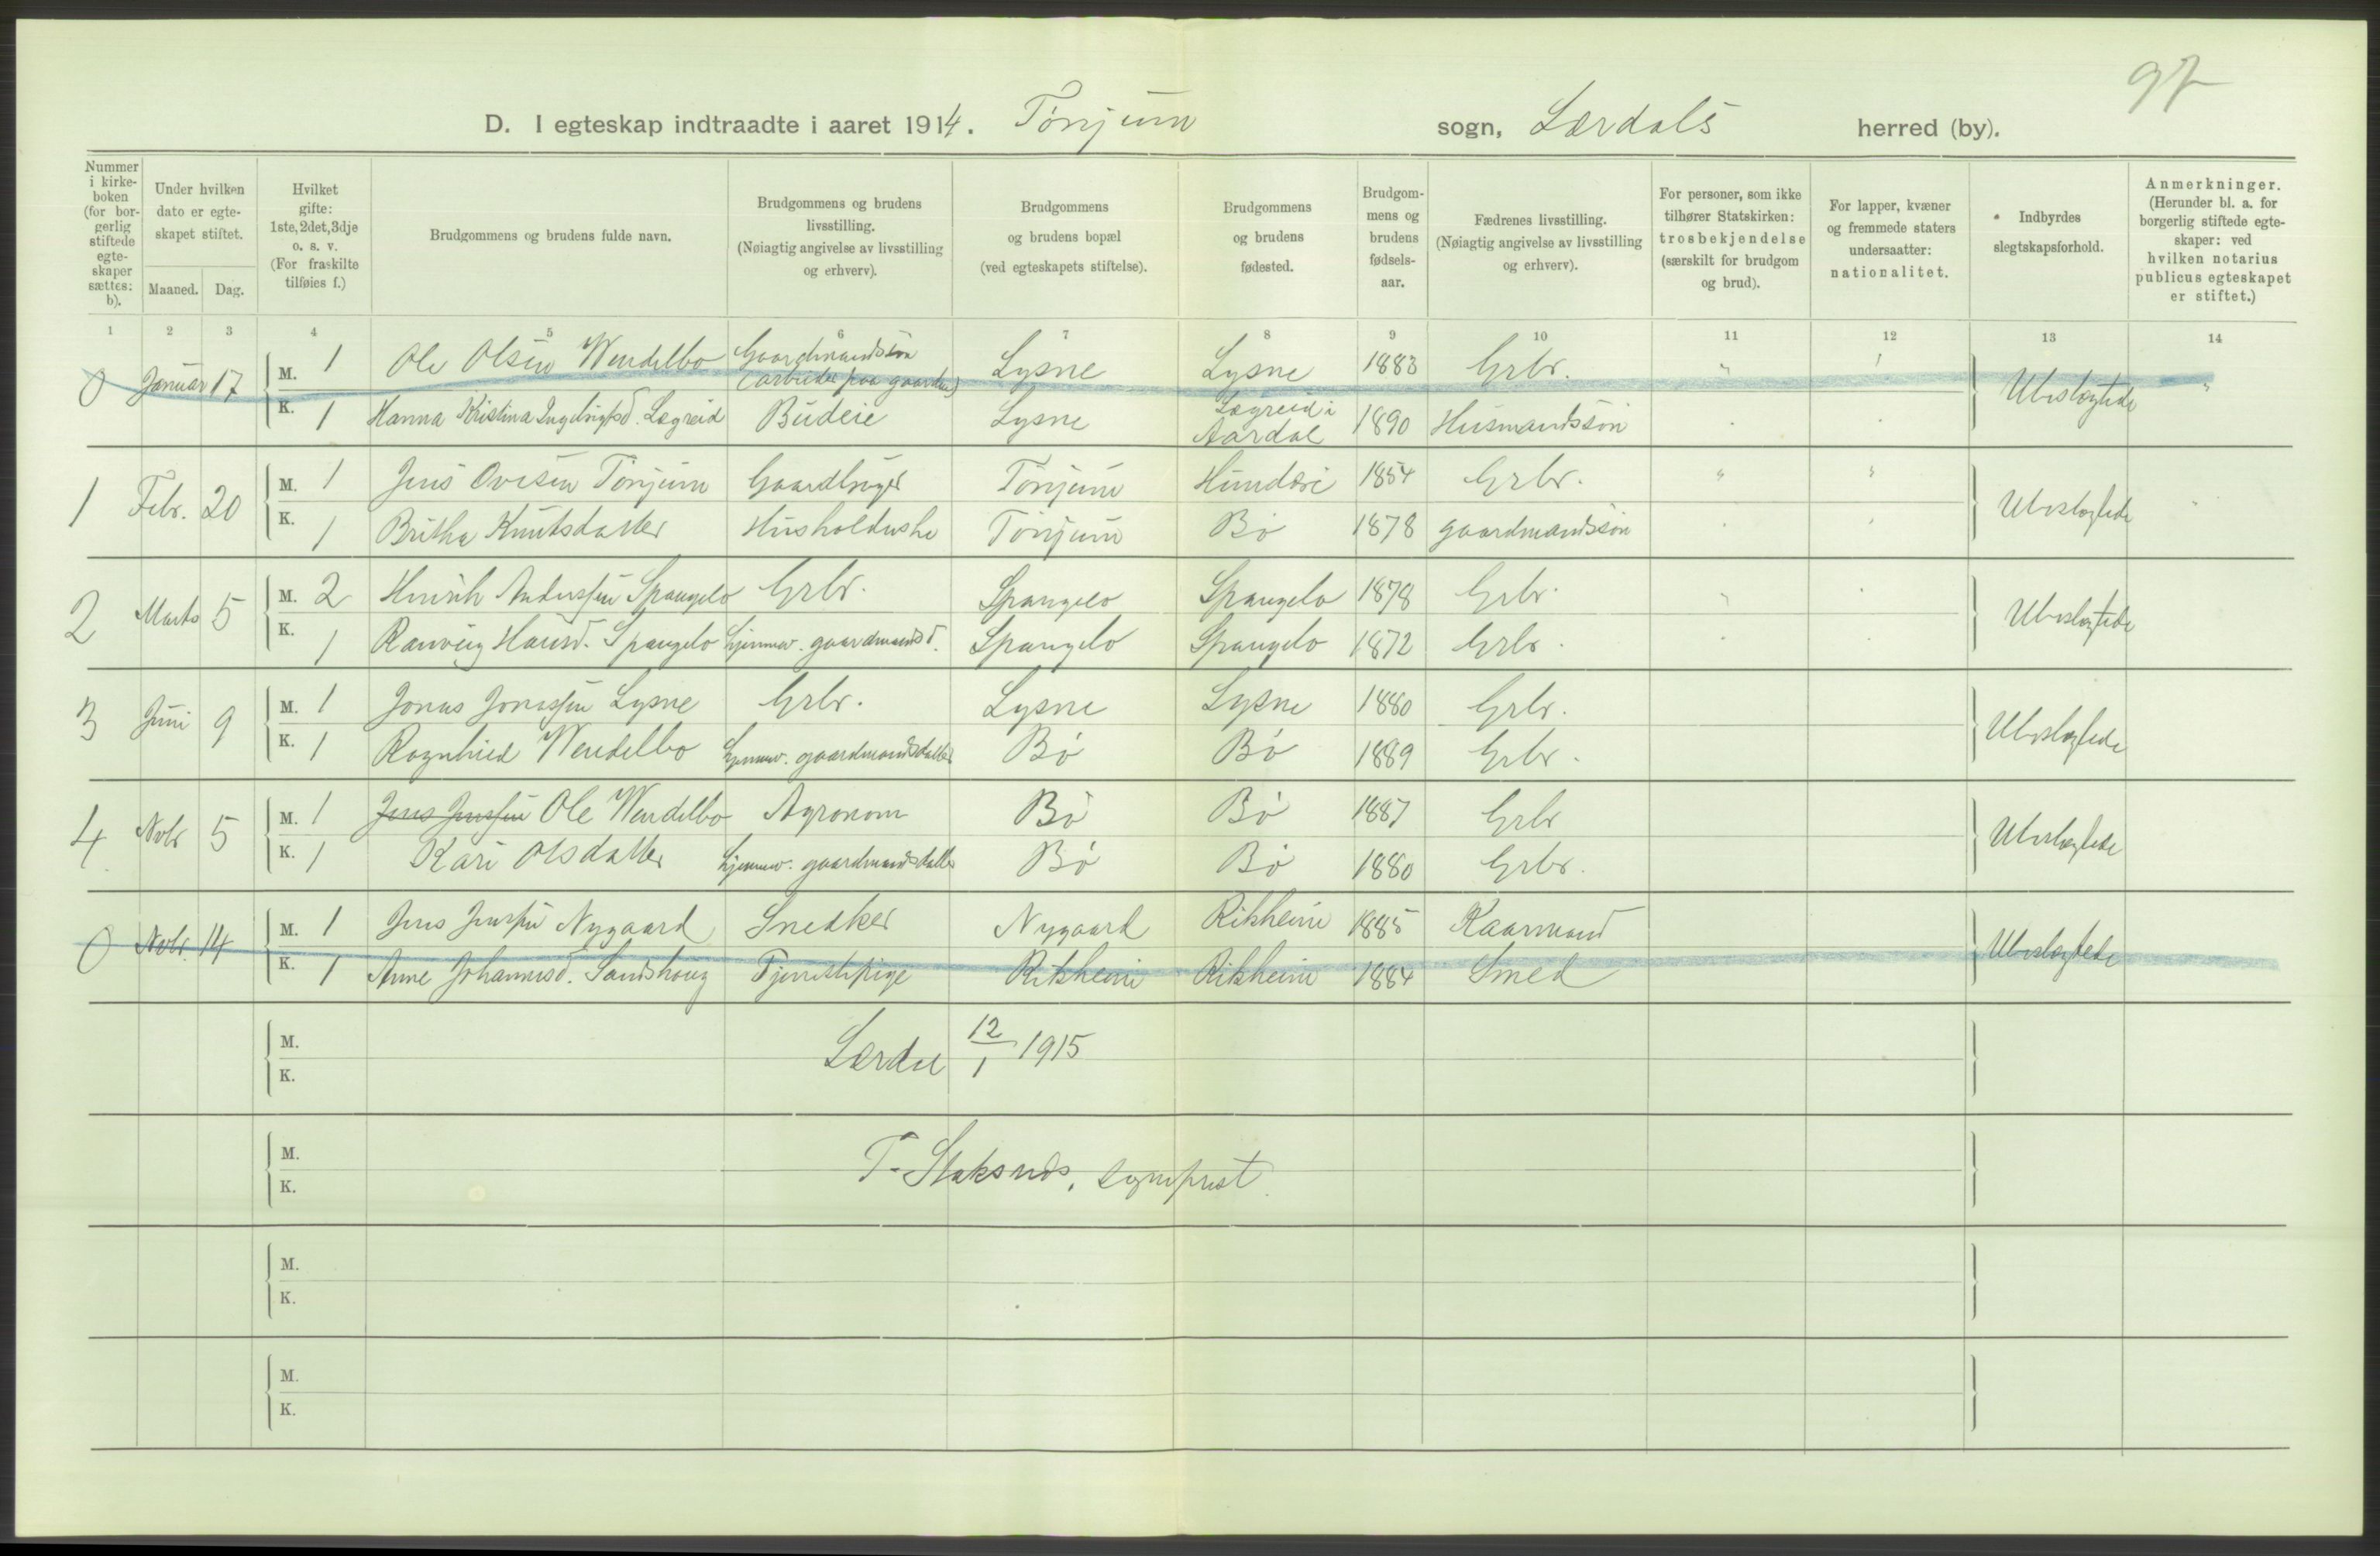 97
D. I egteskap indtraadte i aaret 1914. Tönjum sogn, Lærdals herred (by).
Nummer i kirke- boken (for bor- gerlig stiftede egte- skaper sættes: b).
Under hvilken dato er egte- skapet stiftet.
Maaned. Dag.
Hvilket gifte: 1ste, 2det, 3dje o. s. v. (For fraskilte tilføies f.)
Brudgommens og brudens fulde navn.
Brudgommens og brudens livsstilling. (Nøiagtig angivelse av livsstilling og erhverv).
Brudgommens og brudens bopæl (ved egteskapets stiftelse).
Brudgommens og brudens fødested.
Brudgom- mens og brudens fødsels- aar.
Fædrenes livsstilling. (Nøiagtig angivelse av livsstilling og erhverv).
For personer, som ikke tilhører Statskirken: trosbekjendelse (særskilt for brudgom og brud).
For lapper, kvæner og fremmede staters undersaatter: nationalitet.
Indbyrdes slegtskapsforhold.
Anmerkninger. (Herunder bl. a. for borgerlig stiftede egte- skaper: ved hvilken notarius publicus egteskapet er stiftet.)
1 2 3 4 5 6 7 8 9 10 11 12 13 14
0 Januar 17 M. 1 Ole Olsen Wendelbo Gaardmandssön (arbeider paa gaarden) Lysne Lysne 1883 Grbr. " Ubeslægtede "
K. 1 Hanna Kristina Lægreid Budeie Lysne Lægreid i Aardal 1890 Husmandssön
1 Febr. 20 M. 1 Jens Ovesen Tönjum Gaardbruger Tönjum Hunderi 1854 Grbr. " " Ubeslægtede
K. 1 Britha Knutsdatter Husholderske Tönjum Bö 1878 gaardmandssön
2 Marts 5 M. 2 Henrik Anderssen Spangelo Grbr. Spangelo Spangelo 1878 Grbr. Ubeslægtede
K. 1 Ranveig Hansd. Spangelo hjemmev. gaardmandsd. Spangelo Spangelo 1872 Grbr.
3 Juni 9 M. 1 Jonas Jonassen Lysne Grbr. Lysne Lysne 1880 Grbr. Ubeslægtede
K. 1 Ragnhild Wendelbo hjemmev. gaardmandsdatter Bö Bö 1889 Grbr.
4 Novbr 5 M. 1 Jens Jenssen Ole Wendelbo Agronom Bö Bö 1887 Grbr Ubeslægtede
K. 1 Kari Olsdatter hjemmev. gaardmandsdatter Bö Bö 1880 Grbr.
0 Novbr. 14 M. 1 Jens Jenssen Nygaard Snedker Nygaard Rikheim 1885 Kaarmand Ubeslægtede
K. 1 Anne Johannesd. Sandshoug Tjenestepige Rikheim Rikheim 1884 Smed
M. Lærdal 12/1 1915
K.
M.
K. sogneprest
M.
K.
M.
K.